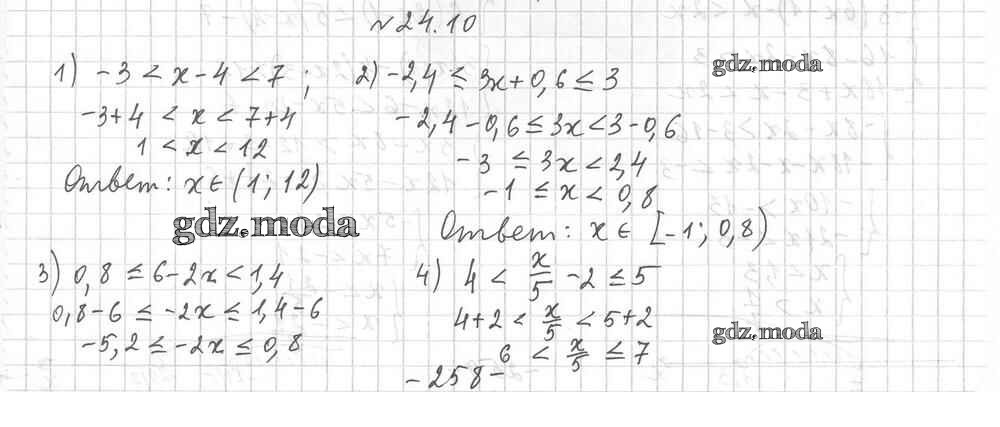 №24.10
1) -3 < x-4 < 7 ;
-3+4 < x < 7+4
1 < x < 12
Ответ: x ∈ (1; 12)
2) -2,4 ≤ 3x+0,6 ≤ 3
-2,4-0,6 ≤ 3x < 3-0,6
-3 ≤ 3x < 2,4
-1 ≤ x < 0,8
Ответ: x ∈ [-1; 0,8)
gdz.moda
gdz.moda
3) 0,8 ≤ 6-2x < 1,4
0,8-6 ≤ -2x ≤ 1,4-6
-5,2 ≤ -2x ≤ 0,8
4) 4 < x/5 -2 ≤ 5
4+2 < x/5 < 5+2
6 < x/5 ≤ 7
gdz.moda
-258-